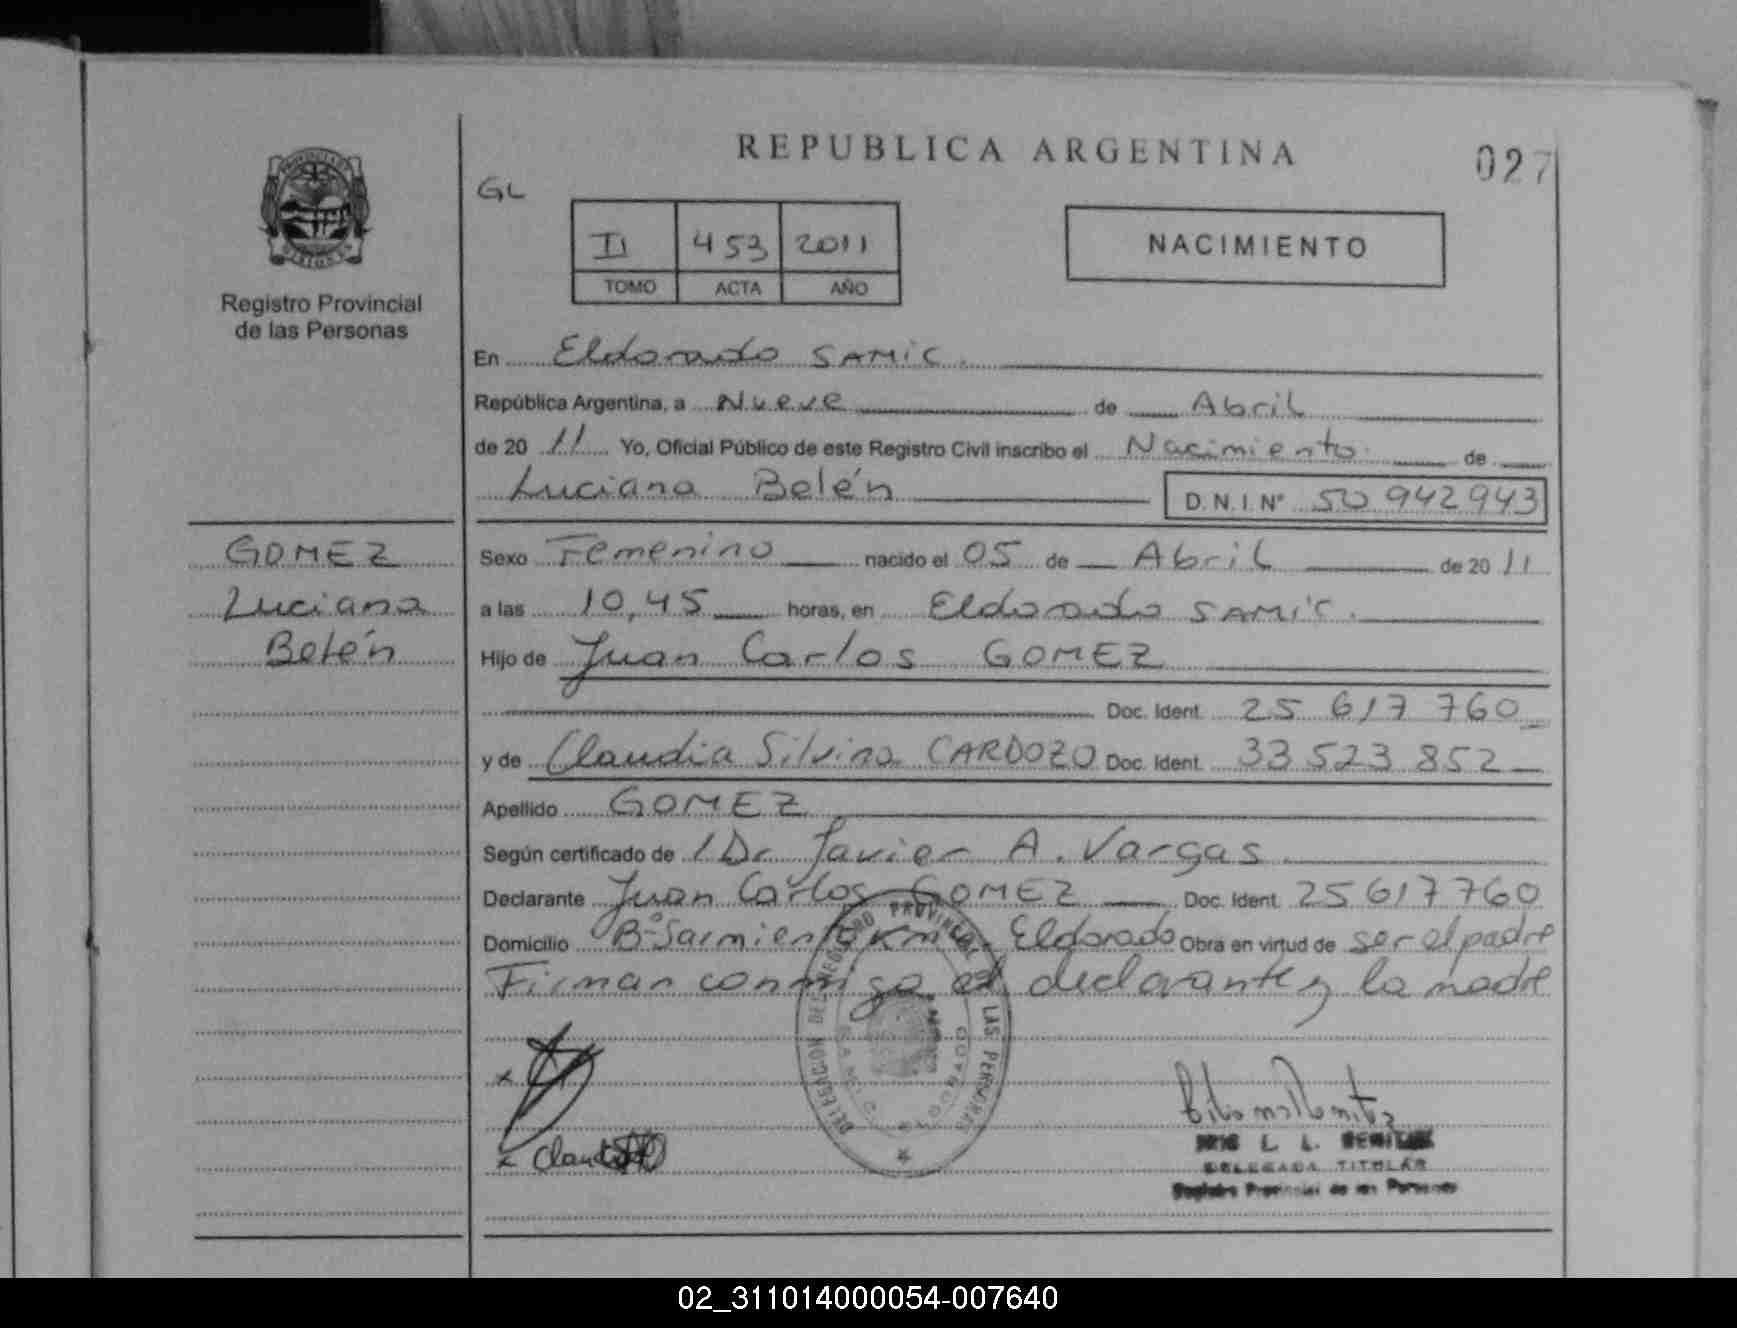 REPUBLICA ARGENTINA
027
GL
II 453 2011
TOMO ACTA AÑO
NACIMIENTO
Registro Provincial
de las Personas
En Eldorado SAMIC.
República Argentina, a Nueve de Abril
de 20 11 Yo, Oficial Público de este Registro Civil inscribo el Nacimiento de
Luciana Belén D.N.I. N° 50 942 943
GOMEZ
Luciana
Belén
Sexo Femenino nacido el 05 de Abril de 20 11
a las 10,45 horas, en Eldorado SAMIC.
Hijo de Juan Carlos GOMEZ
Doc. Ident. 25 617 760
y de Claudia Silvina CARDOZO Doc. Ident. 33 523 852
Apellido GOMEZ
Según certificado de Dr Javier A. Vargas
Declarante Juan Carlos GOMEZ Doc. Ident. 25617760
Domicilio B° Sarmiento Km Eldorado Obra en virtud de ser el padre
Firman conmigo el declarante y la madre
DELEGACION DEL REGISTRO PROVINCIAL LAS PERSONAS
L. L. BENITEZ
DELEGADA TITULAR
Registro Provincial de las Personas
02_311014000054-007640